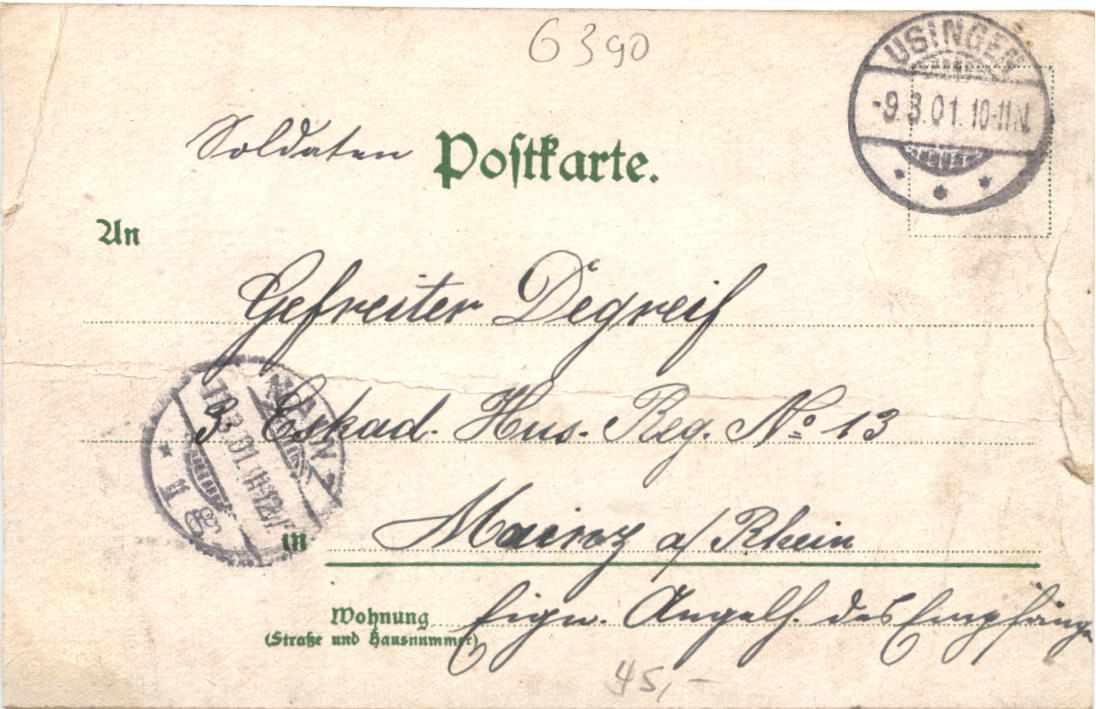 6390
USINGEN
-9.3.01. 10-11 N.
Soldaten Postkarte.
An
Gefreiter Degreif
3. Eskad. Hus. Reg. No 13
MAINZ
.3.01. 11-12
in Mainz a/ Rhein
Wohnung
(Straße und Hausnummer)
Eign. Angelh. des Empfänge
45,-